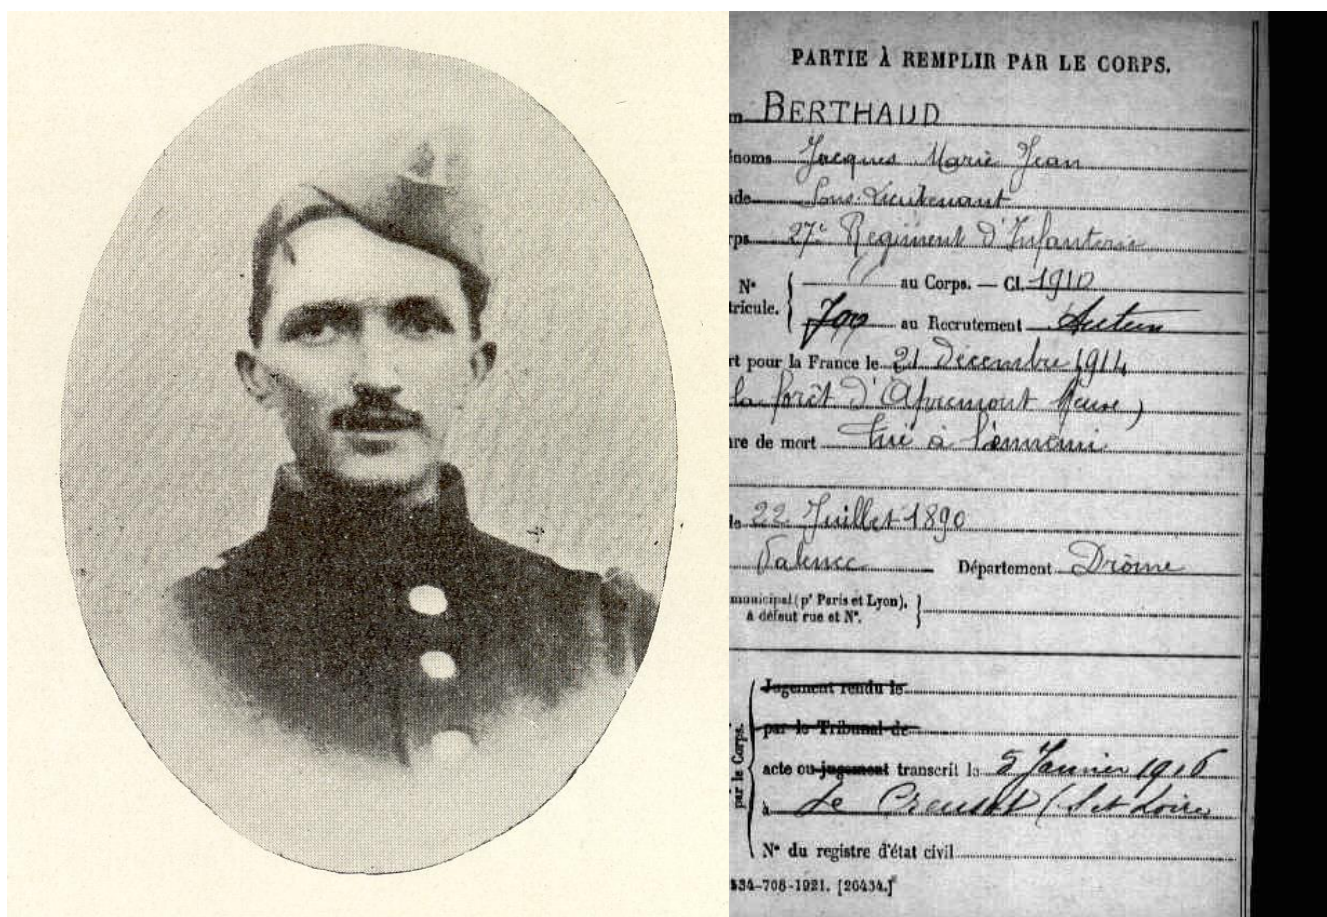 PARTIE À REMPLIR PAR LE CORPS.
m BERTHAUD
énoms Jacques Marie Jean
ade Sous-Lieutenant
rps 27e Régiment d'Infanterie
N°
tricule.
au Corps. — Cl. 1910
au Recrutement Autun
rt pour la France le 21 décembre 1914
la forêt d'Apremont Meuse)
re de mort tué à l'ennemi
le 22 Juillet 1890
Valence Département Drôme
municipal (pr Paris et Lyon),
à défaut rue et N°.
Jugement rendu le
par le Tribunal de
par le Corps.
acte ou jugement transcrit le 5 Janvier 1916
à Le Creusot (S et Loire
N° du registre d'état civil
534-708-1921. [26434.]